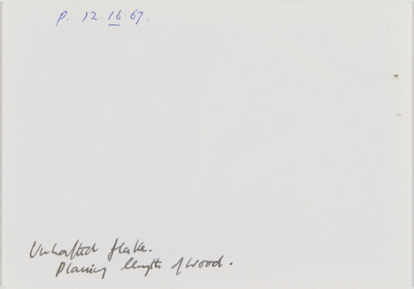 P. 12.16.67.
Unhafted flake.
Planing length of wood.